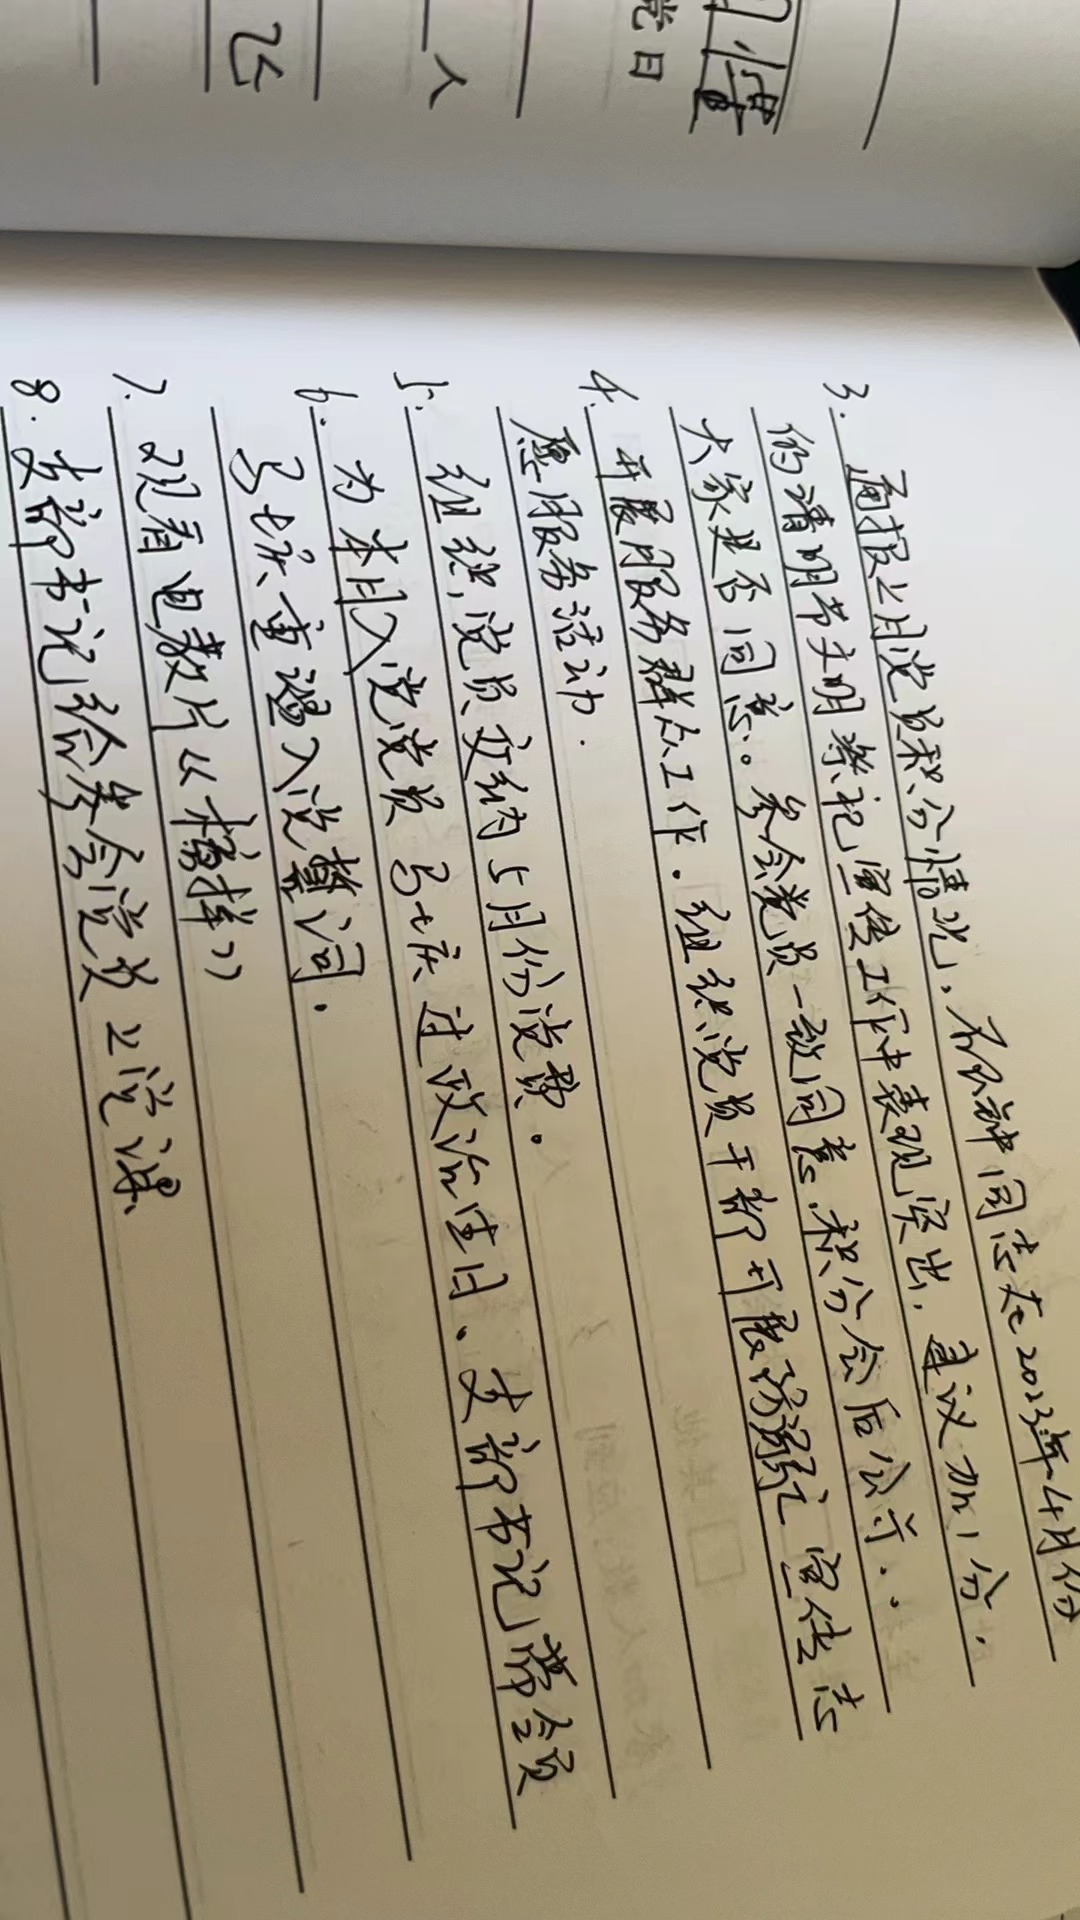 慢
党日
人
3. 通报上月党员积分情况，同志在2023年4月份
的清明节文明祭祀宣传工作中表现突出，建议加1分．
大家是否同意。参会党员一致同意．积分会后公示．．
4. 开展服务群众工作．组织党员干部开展防溺亡宣传志
愿服务活动．
5. 组织党员交纳5月份党费．
6. 为本月入党党员过政治生日．支部书记带全员
重温入党誓词．
7. 观看电教片《榜样》
8. 支部书记给参会党员上党课